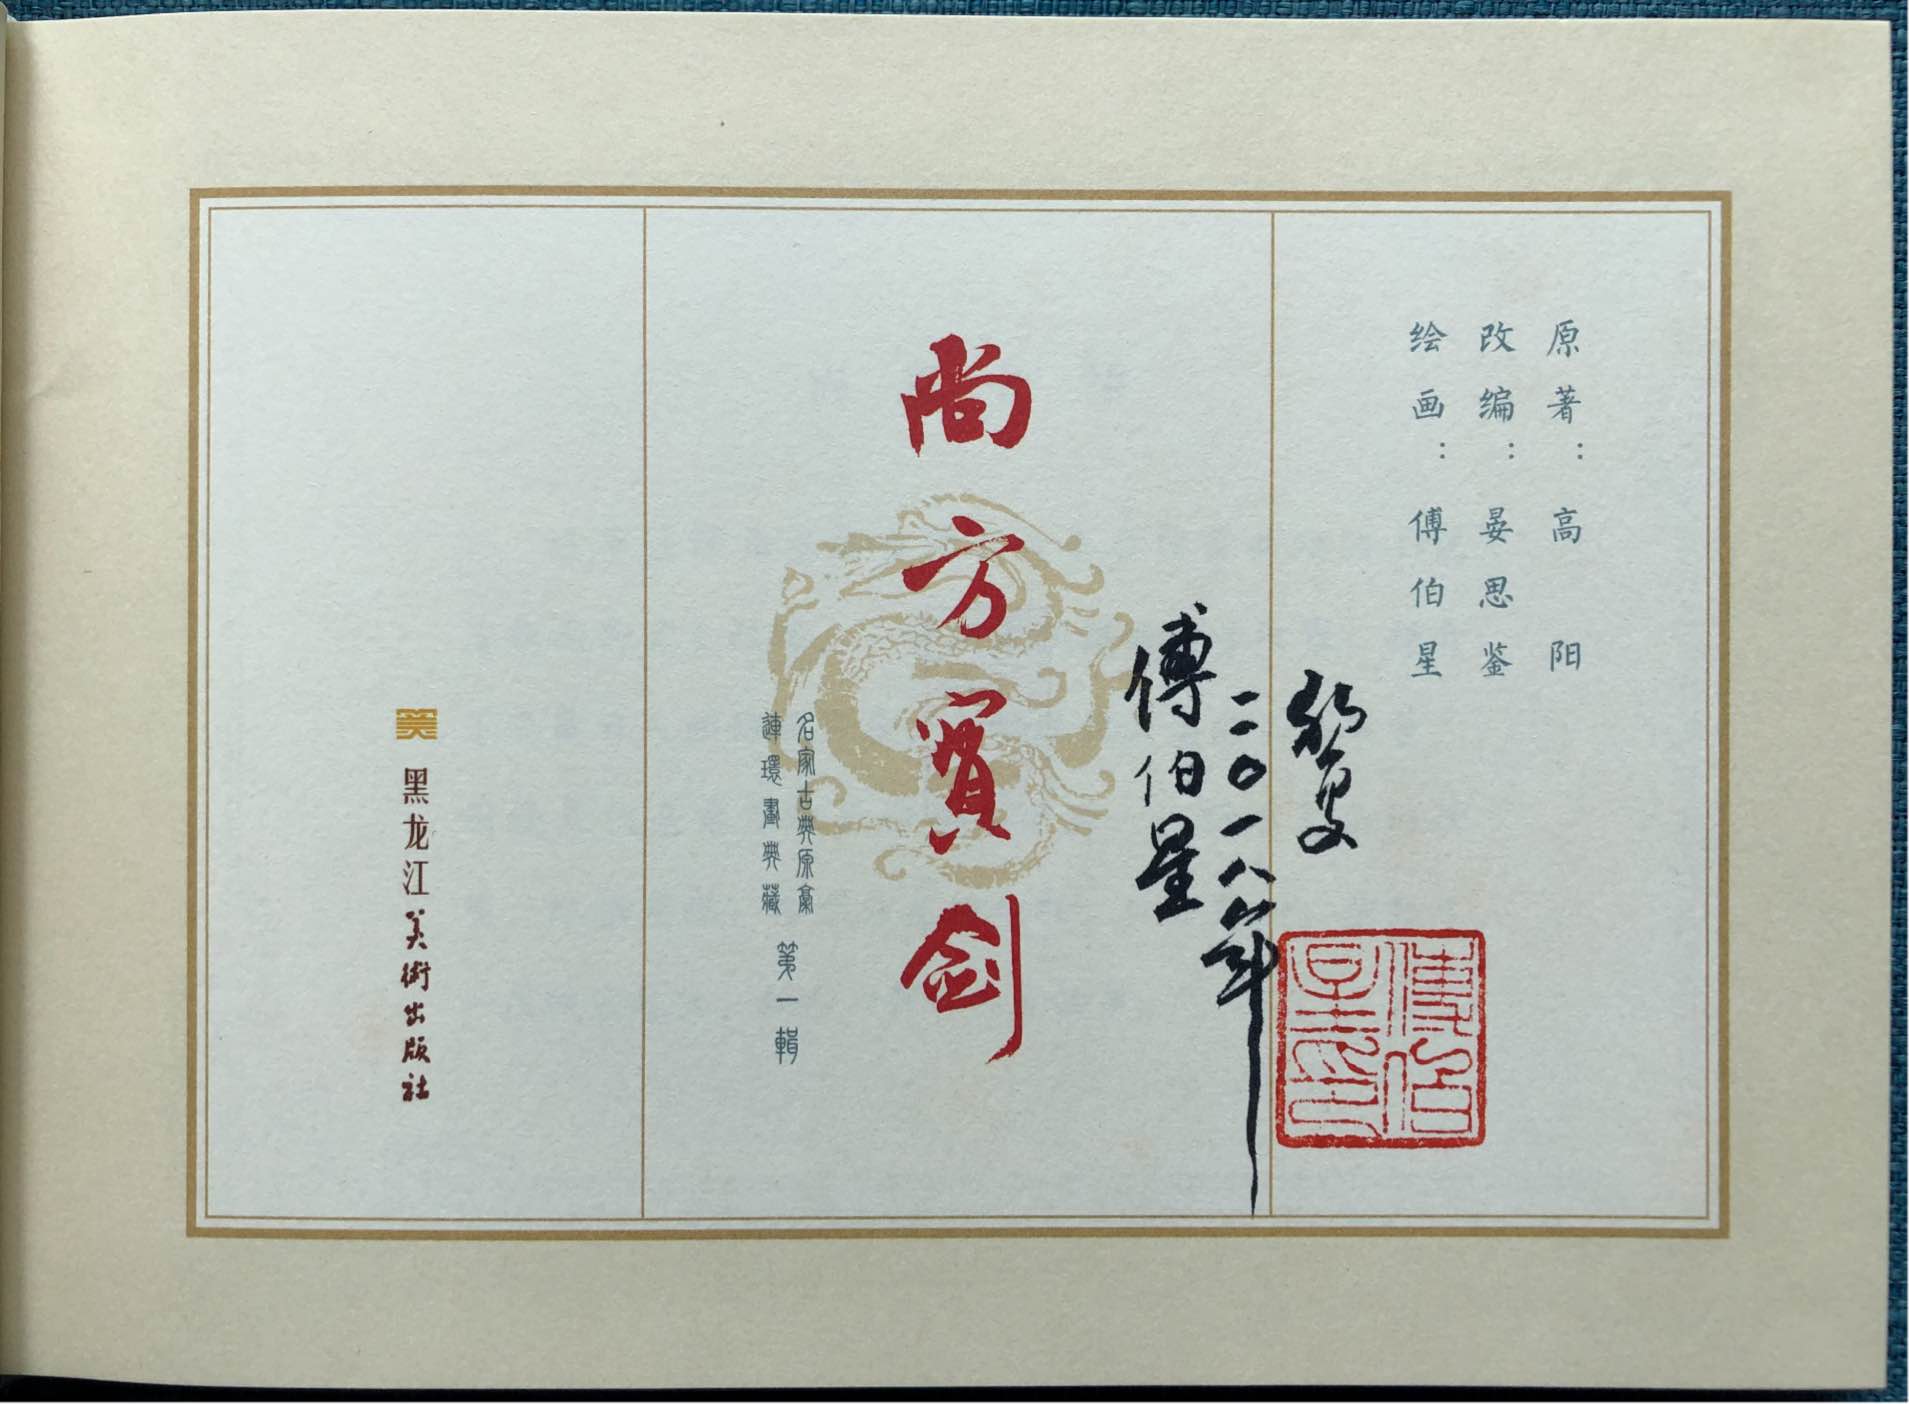 原著：高阳
改编：晏思鉴
绘画：傅伯星
二〇一八年
傅伯星
尚方寶剑
名家古典原稾
連環畫典藏
第一輯
黑龙江美術出版社
傅伯星印